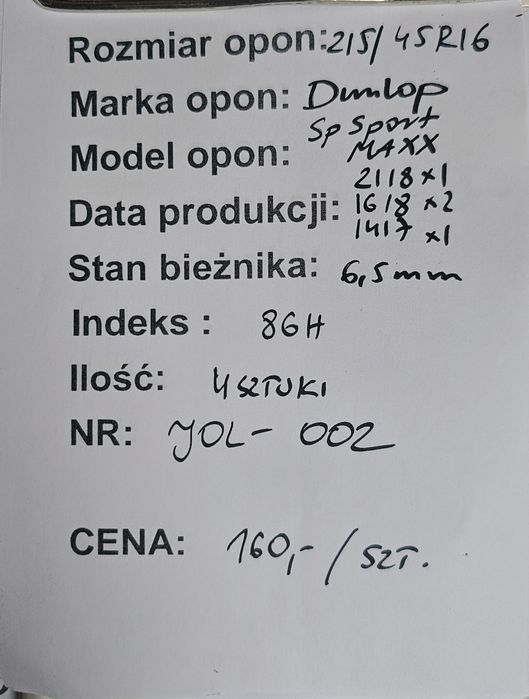 Rozmiar opon: 215/45R16
Marka opon: Dunlop
Model opon: Sp Sport
MAXX
2118 x1
Data produkcji: 1618 x2
1417 x1
Stan bieżnika: 6,5mm
Indeks : 86H
Ilość: 4 SZTUKI
NR: JOL- 002
CENA: 160,- / SZT.